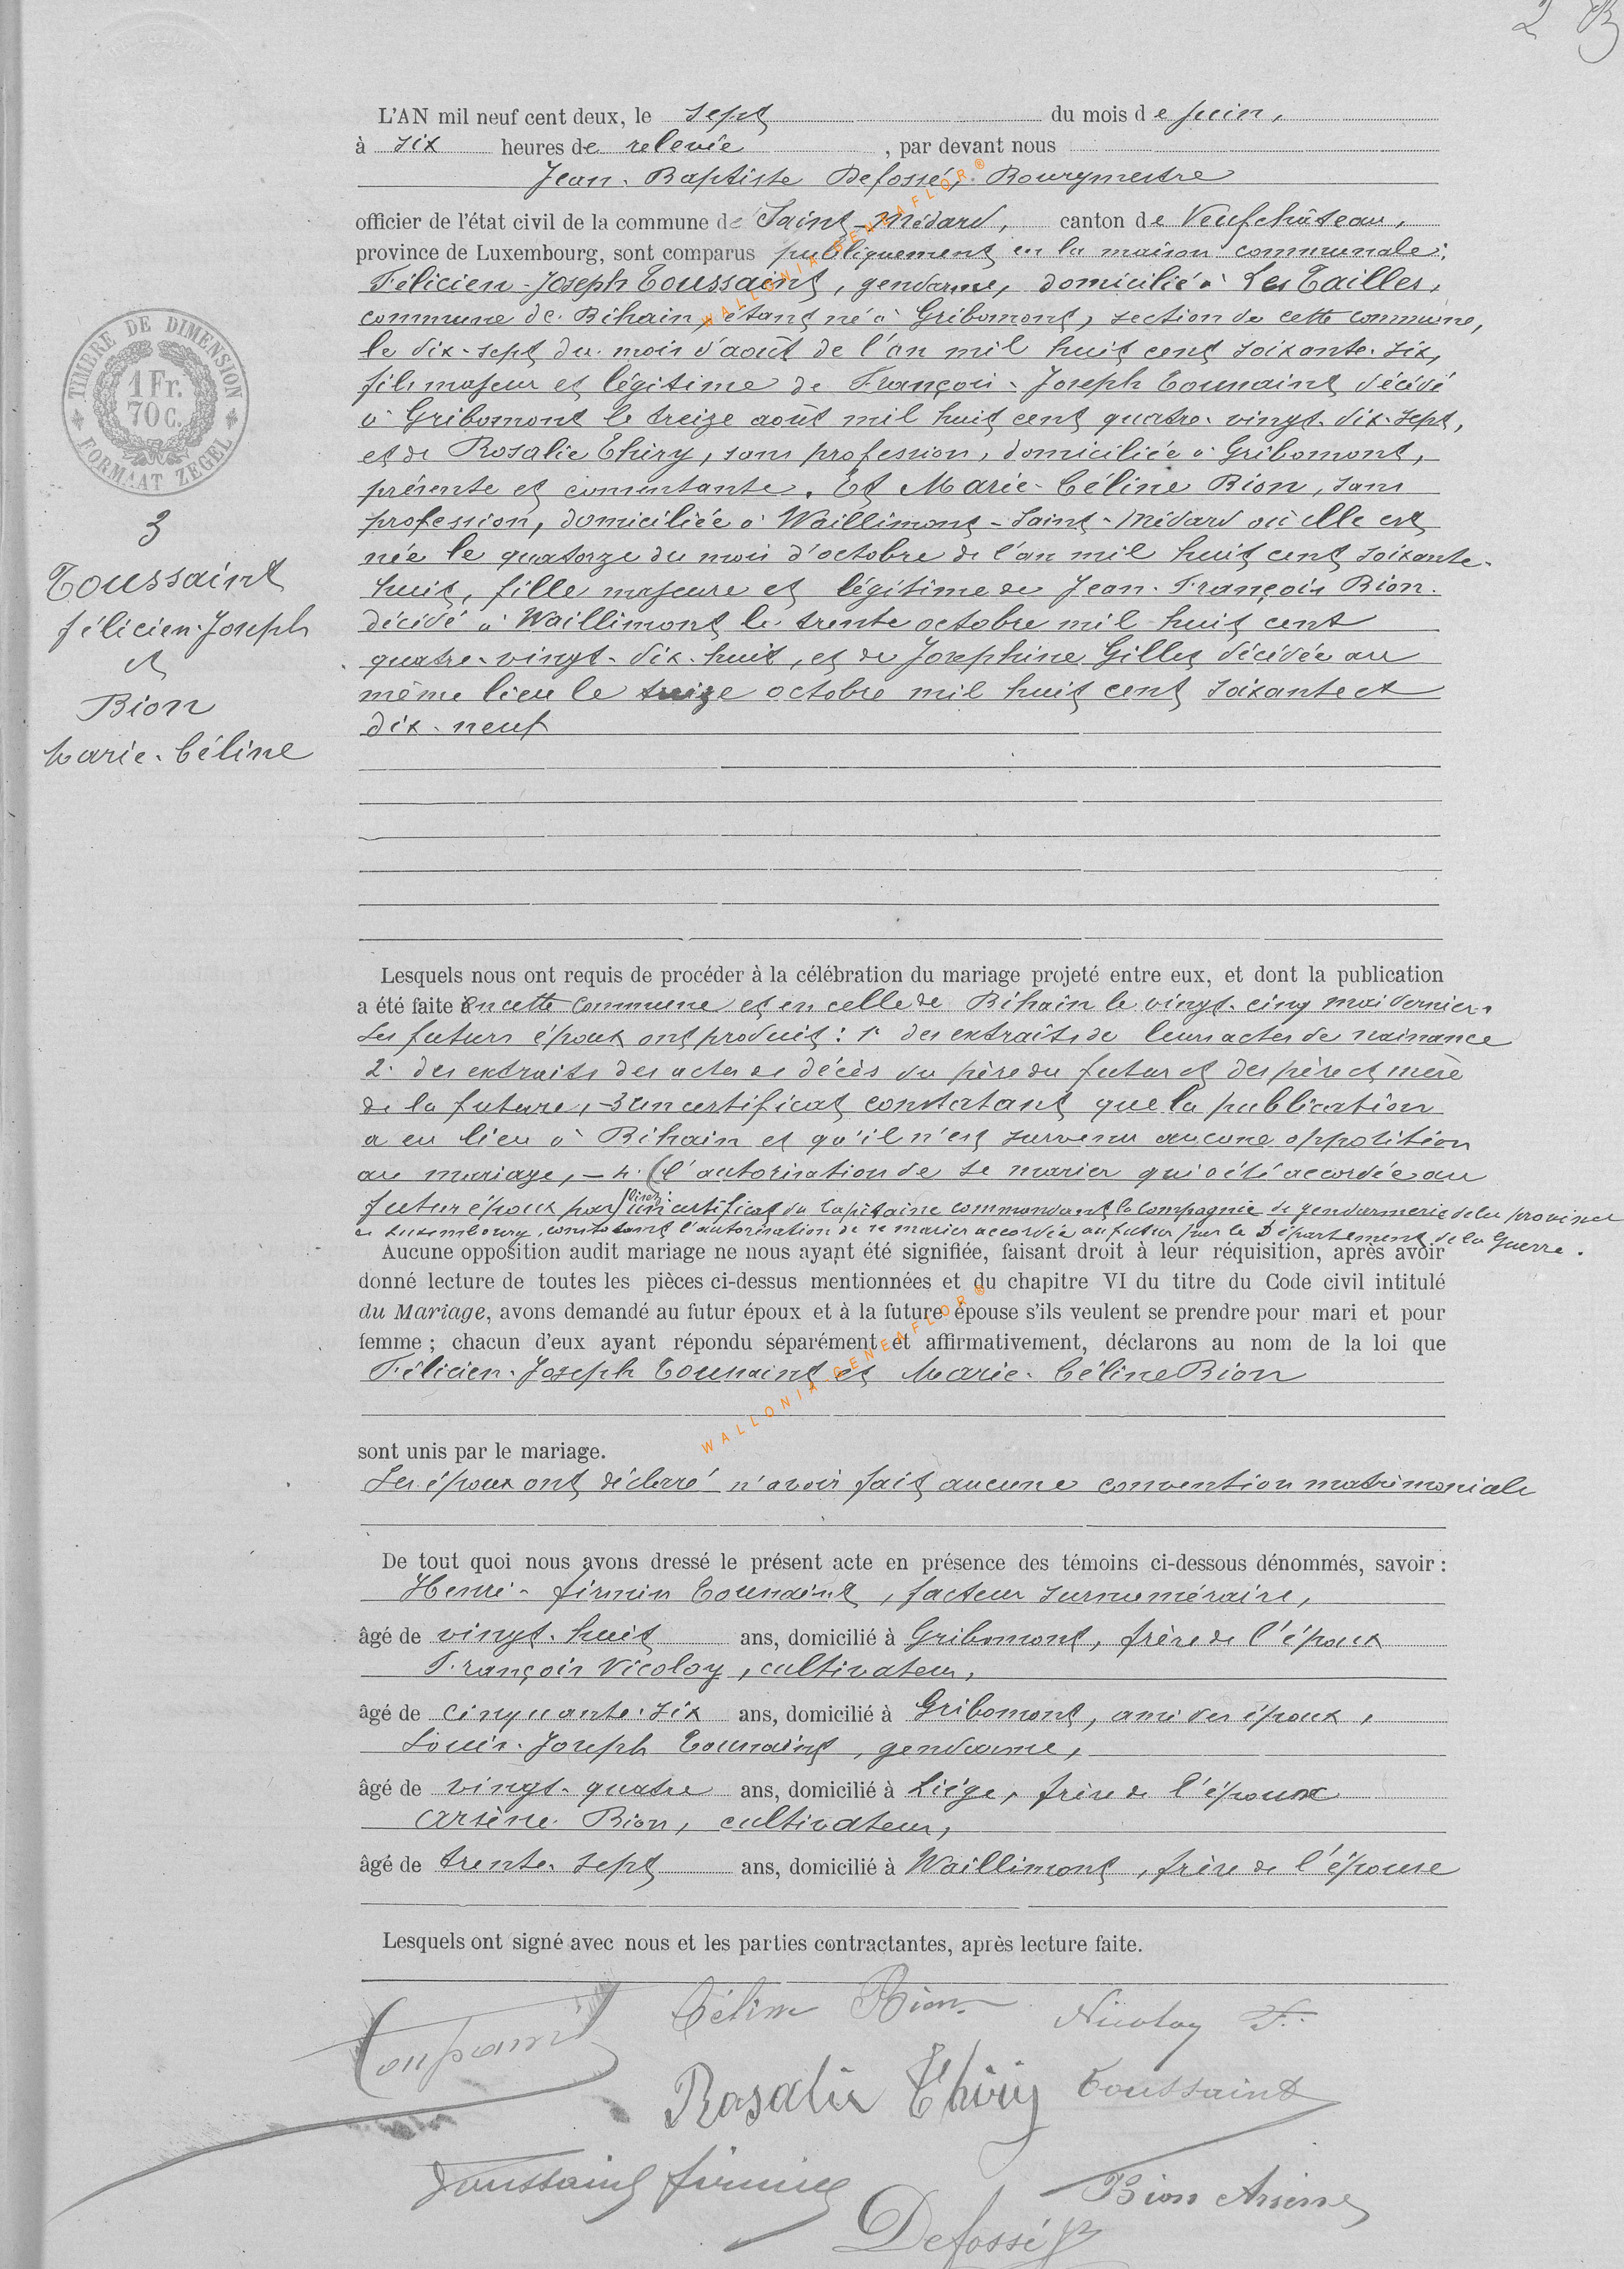 2
L'AN mil neuf cent deux, le sept du mois de juin,
à six heures de relevée, par devant nous
Jean-Baptiste Defossé, Bourgmestre
officier de l'état civil de la commune de Saint-Médard, canton de Neufchâteau,
province de Luxembourg, sont comparus publiquement en la maison communale:
Félicien-Joseph Toussaint, gendarme, domicilié à Les Tailles,
commune de Bihain, étant né à Gribomont, section de cette commune,
le dix-sept du mois d'août de l'an mil huit cent soixante-six,
fils majeur et légitime de François-Joseph Toussaint décédé
à Gribomont le treize août mil huit cent quatre-vingt-dix-sept,
et de Rosalie Thiry, sans profession, domiciliée à Gribomont,
présente et consentante. Et Marie-Céline Bion, sans
profession, domiciliée à Waillimont-Saint-Médard où elle est
née le quatorze du mois d'octobre de l'an mil huit cent soixante-
huit, fille majeure et légitime de Jean-François Bion
décédé à Waillimont le trente octobre mil huit cent
quatre-vingt-dix-huit, et de Joséphine Gilles décédée au
même lieu le octobre mil huit cent soixante et
dix-neuf
TIMBRE DE DIMENSION
1 Fr.
70 C.
FORMAAT ZEGEL
3
Toussaint
félicien-Joseph
et
Bion
Marie-Céline
Lesquels nous ont requis de procéder à la célébration du mariage projeté entre eux, et dont la publication
a été faite en cette commune et en celle de Bihain le vingt-cinq mai dernier.
Les futurs époux ont produit: 1° des extraits de leurs actes de naissance
2° des extraits des actes de décès du père du futur et des père et mère
de la future, - 3 un certificat constatant que la publication
a eu lieu à Bihain et qu'il n'est survenu aucune oppotition
au mariage, - 4° (l'autorisation de se marier qui a été accordée au
futur époux par) lisez: un certificat du Capitaine commandant la Compagnie de gendarmerie de la province
de Luxembourg, constatant l'autorisation de se marier accordée au futur par le Département de la Guerre.
Aucune opposition audit mariage ne nous ayant été signifiée, faisant droit à leur réquisition, après avoir
donné lecture de toutes les pièces ci-dessus mentionnées et du chapitre VI du titre du Code civil intitulé
du Mariage, avons demandé au futur époux et à la future épouse s'ils veulent se prendre pour mari et pour
femme ; chacun d'eux ayant répondu séparément et affirmativement, déclarons au nom de la loi que
Félicien-Joseph Toussaint et Marie-Céline Bion
sont unis par le mariage.
Les époux ont déclaré n'avoir fait aucune convention matrimoniale
De tout quoi nous avons dressé le présent acte en présence des témoins ci-dessous dénommés, savoir :
Henri-firmin Toussaint, facteur surnuméraire,
âgé de vingt-huit ans, domicilié à Gribomont, frère de l'époux
François Nicolay, cultivateur,
âgé de cinquante-six ans, domicilié à Gribomont, ami des époux,
Louis-Joseph Toussaint, gendarme,
âgé de vingt-quatre ans, domicilié à Liége, frère de l'époux
Arsène Bion, cultivateur,
âgé de trente-sept ans, domicilié à Waillimont, frère de l'épouse
Lesquels ont signé avec nous et les parties contractantes, après lecture faite.
Toussaint Céline Bion Nicolay F.
Rosalie Thiry Toussaint
Toussaint firmin Bion Arsène
Defossé
WALLONIA-GENEAFLOR®
WALLONIA-GENEAFLOR®